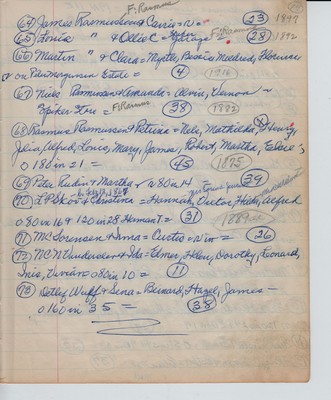 F. Rasmus
(64) James Rasmussen & Carrie = N = (23) 1897
(65) Louis " & Ollie C = (28) 1892
(66) Martin " & Clara = Myrtle, Bessie, Mildred, Florence
on Pete Morgensen Estate = (4) 1916
(67) Niels Rasmussen & Amanda = Alvin, Vernon ~
F. Rasmus
(38) 1882
(68) Rasmus Rasmussen & = Nels, Mathilda, Henry,
Julia, Alfred, Louis, Mary, James, Robert, Martha, Elsie
O 180 in 21 = (45) 1875
(69) Peter Rudin & Martha r 80 in 14 = (39)
(70) L P Skov & Christina = Hannah, Victor, Hilda, Alfred
O 80 in 16 & 120 in 28 Herman T. = (31) 1889
(71) M C Sorensen & Anna = Curtis = N in = (26)
(72) N C N & Ida = Elmer, Helen, Dorothy, Leonard,
Inis, Vivian O 80 in 10 = (11)
(73) Detlef Wulff & Sena = Bernard, Hazel, James =
O 160 in 35 = (38)